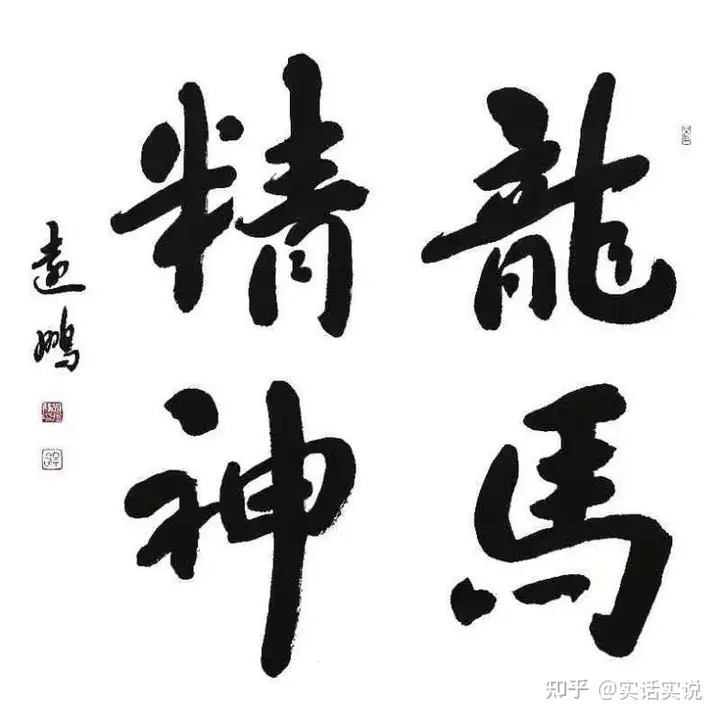 龍馬
精神
遠鹏
知乎 @实话实说